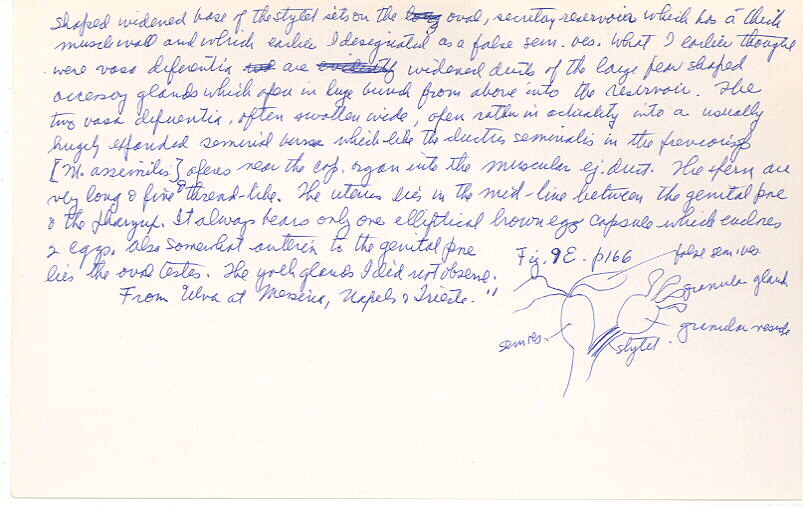 shaped widened base of the stylet sets on the long oval, secretory reservoir which has a thick
muscle wall and which earlier I designated as a false sem. ves. What I earlier thought
were vasa diferentia and are evidently widened ducts of the large pear shaped
accessory glands which open in large bunch from above into the reservoir. The
two vasa diferentia, often swollen wide, open rather in actuality into a usually
hugely expanded seminal bursa which like the ductus seminalis in the previous sp
[M. assimilis] opens near the cop. organ into the muscular ej. duct. The sperm are
very long & fine thread-like. The uterus lies in the mid-line between the genital pore
& the pharynx. It always bears only one elliptical brown egg capsule which encloses
2 eggs. also somewhat anterior to the genital pore
lies the oval testes. The yolk glands I did not observe.
From Ulva at Messina, Napels & Trieste."
Fig. 9E. p166
false sem. ves.
granular gland
granular resvoir
stylet.
sem ves.